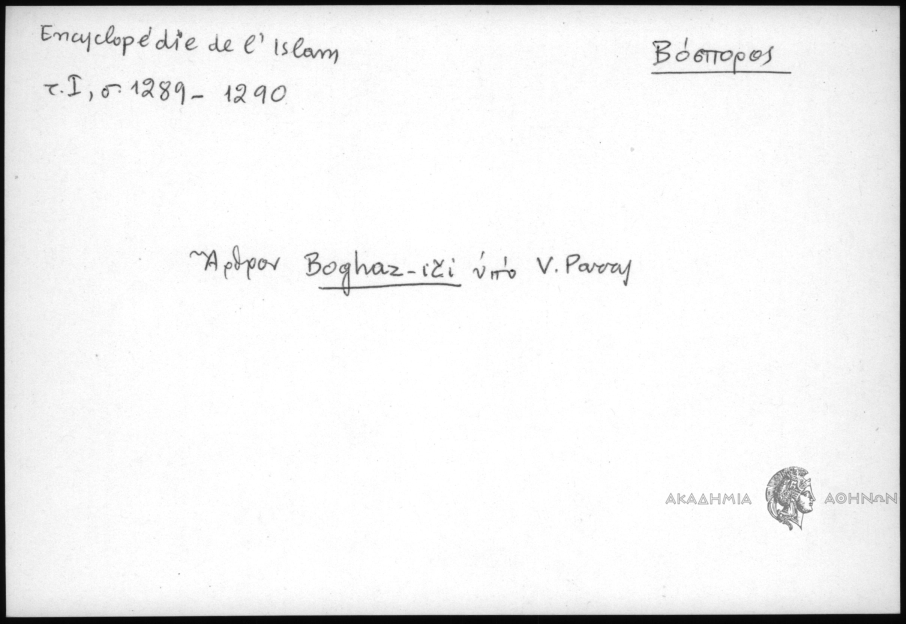 Encyclopédie de l' Islam
Βόσπορος
τ. I, σ. 1289 - 1290
Ἄρθρον Boghaz-iči ὑπὸ V. Parry
ΑΚΑΔΗΜΙΑ ΑΘΗΝΩΝ